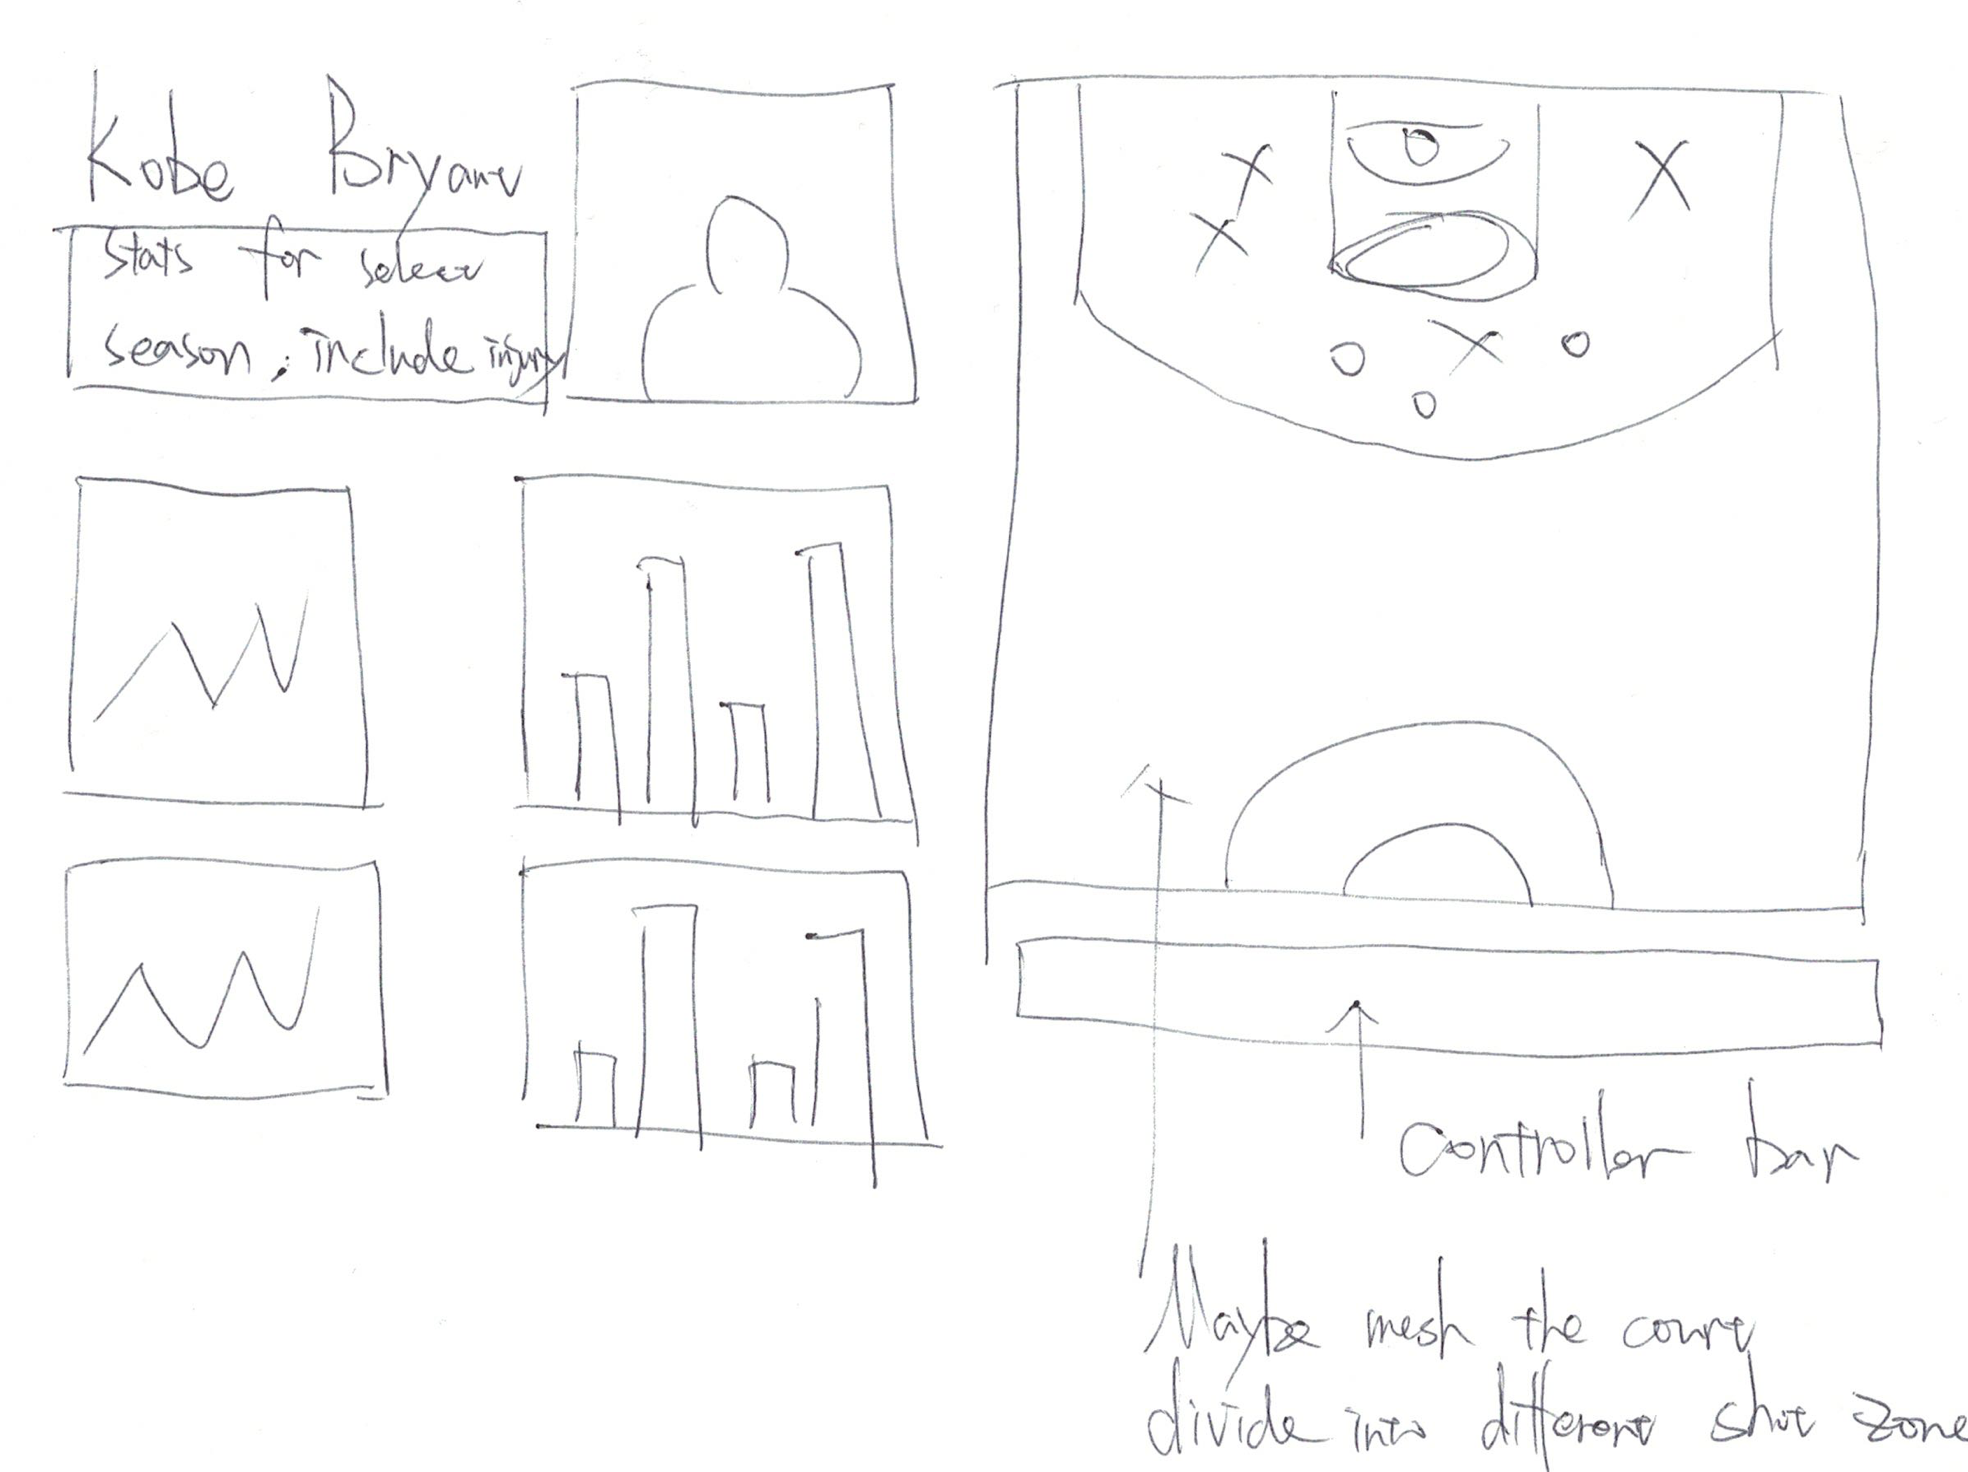 Kobe Bryant
Stats for select
season, include injury
Controller bar
Maybe mesh the court
divide into different shot zone